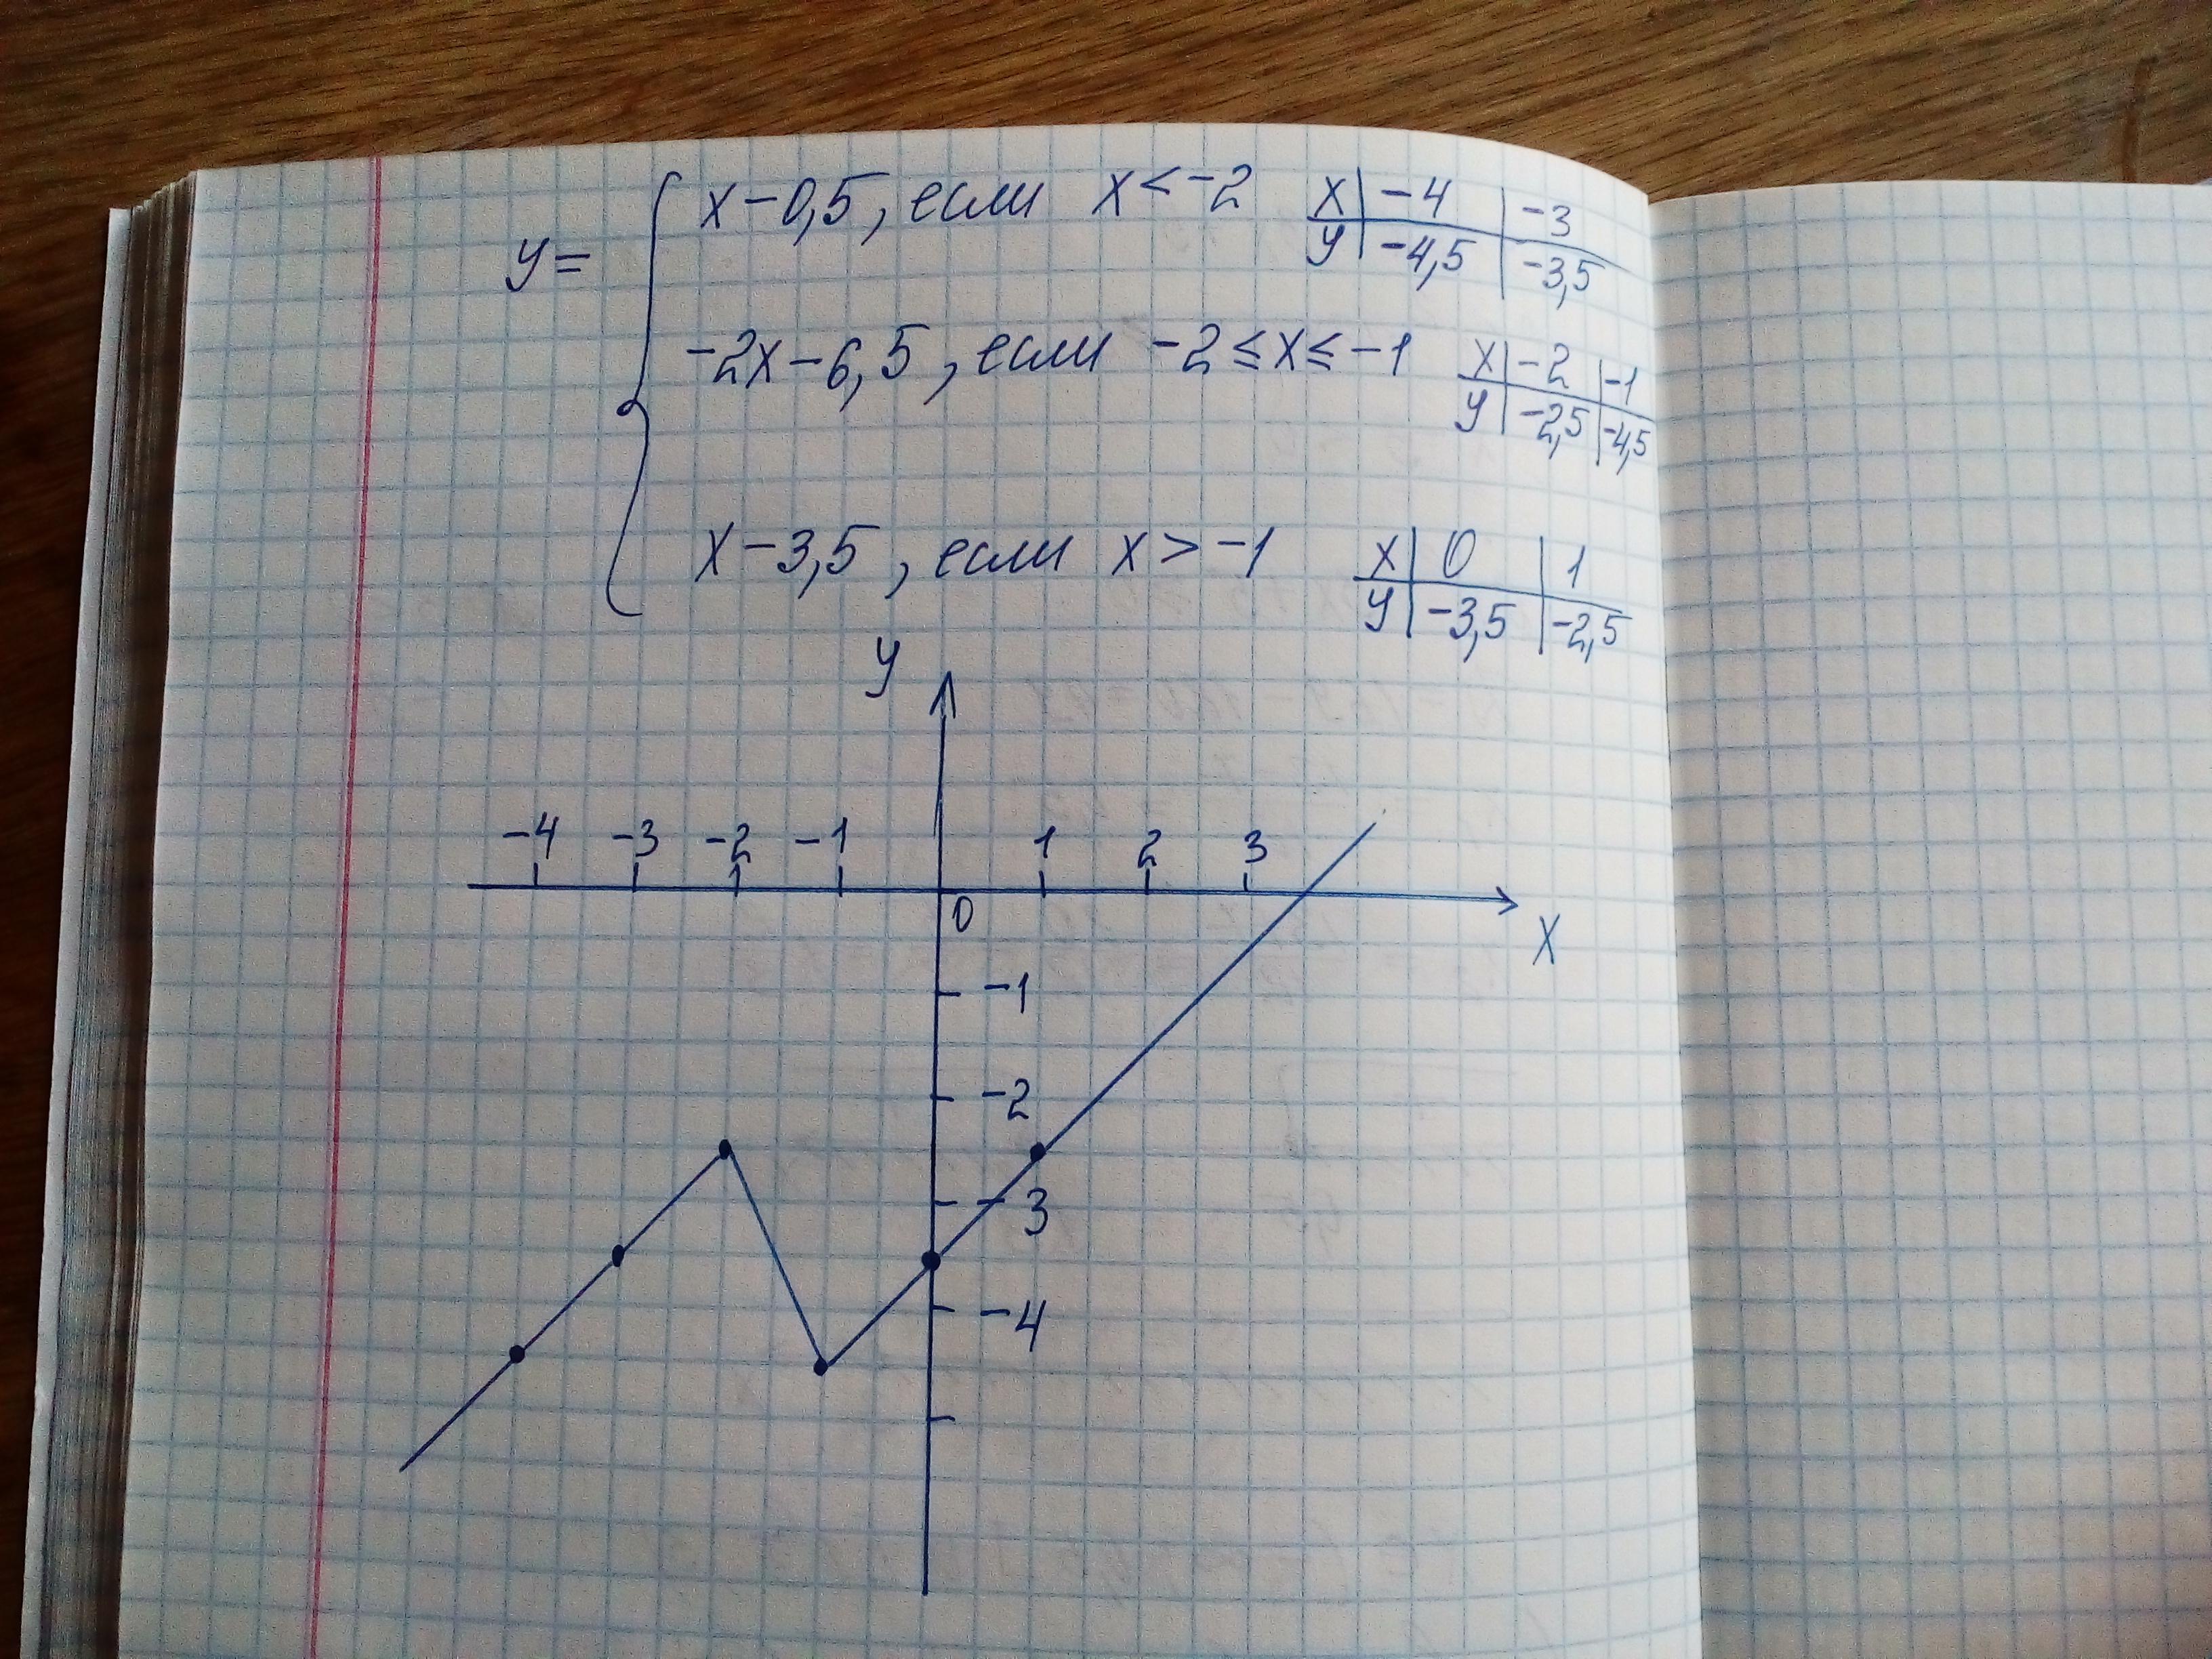 y = { x-0,5, если x<-2
x | -4 | -3
y | -4,5 | -3,5
-2x-6,5, если -2≤x≤-1
x | -2 | -1
y | -2,5 | -4,5
x-3,5, если x>-1
x | 0 | 1
y | -3,5 | -2,5
y
-4 -3 -2 -1 1 2 3
0
x
-1
-2
-3
-4